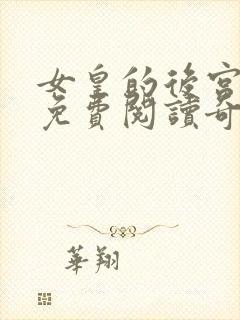 女皇的後宮
免費閱讀奇
華翔